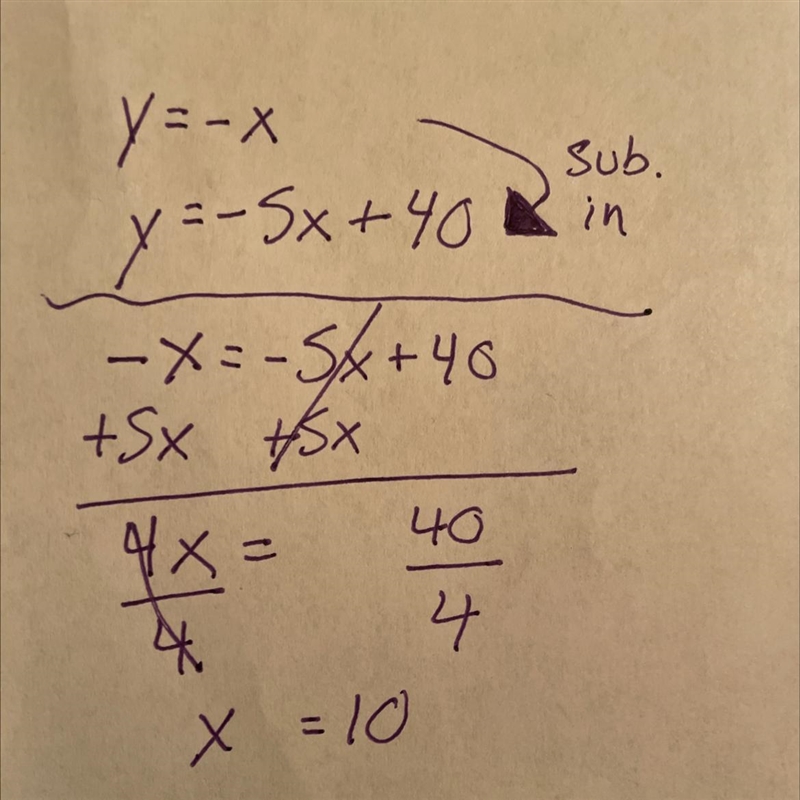 y = -x
y = -5x + 40 sub. in
-x = -5x + 40
+5x +5x
4x = 40
4 4
x = 10